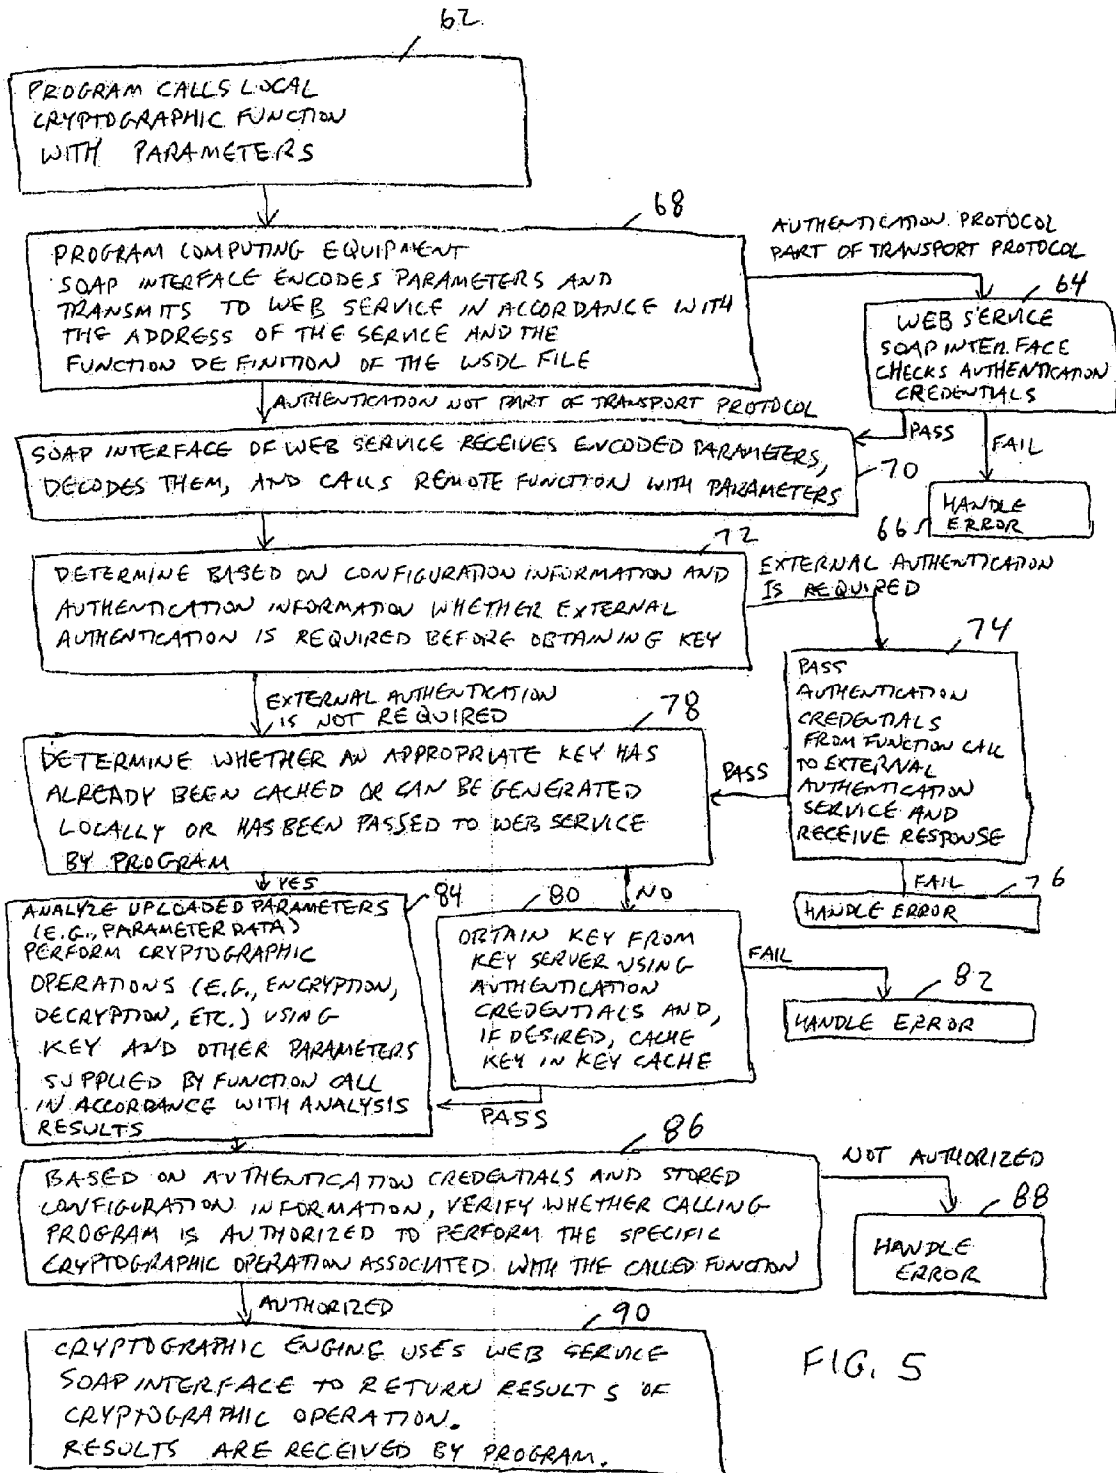 62
PROGRAM CALLS LOCAL
CRYPTOGRAPHIC FUNCTION
WITH PARAMETERS
68
PROGRAM COMPUTING EQUIPMENT
SOAP INTERFACE ENCODES PARAMETERS AND
TRANSMITS TO WEB SERVICE IN ACCORDANCE WITH
THE ADDRESS OF THE SERVICE AND THE
FUNCTION DEFINITION OF THE WSDL FILE
AUTHENTICATION PROTOCOL
PART OF TRANSPORT PROTOCOL
64
WEB SERVICE
SOAP INTERFACE
CHECKS AUTHENTICATION
CREDENTIALS
AUTHENTICATION NOT PART OF TRANSPORT PROTOCOL
PASS
FAIL
SOAP INTERFACE OF WEB SERVICE RECEIVES ENCODED PARAMETERS,
DECODES THEM, AND CALLS REMOTE FUNCTION WITH PARAMETERS
70
HANDLE
ERROR
66
72
DETERMINE BASED ON CONFIGURATION INFORMATION AND
AUTHENTICATION INFORMATION WHETHER EXTERNAL
AUTHENTICATION IS REQUIRED BEFORE OBTAINING KEY
EXTERNAL AUTHENTICATION
IS REQUIRED
74
PASS
AUTHENTICATION
CREDENTIALS
FROM FUNCTION CALL
TO EXTERNAL
AUTHENTICATION
SERVICE AND
RECEIVE RESPONSE
EXTERNAL AUTHENTICATION
IS NOT REQUIRED
78
DETERMINE WHETHER AN APPROPRIATE KEY HAS
ALREADY BEEN CACHED OR CAN BE GENERATED
LOCALLY OR HAS BEEN PASSED TO WEB SERVICE
BY PROGRAM
PASS
FAIL
76
HANDLE ERROR
YES
84
ANALYZE UPLOADED PARAMETERS
(E.G., PARAMETER DATA)
PERFORM CRYPTOGRAPHIC
OPERATIONS (E.G., ENCRYPTION,
DECRYPTION, ETC.) USING
KEY AND OTHER PARAMETERS
SUPPLIED BY FUNCTION CALL
IN ACCORDANCE WITH ANALYSIS
RESULTS
80
NO
OBTAIN KEY FROM
KEY SERVER USING
AUTHENTICATION
CREDENTIALS AND,
IF DESIRED, CACHE
KEY IN KEY CACHE
FAIL
82
HANDLE ERROR
PASS
86
BASED ON AUTHENTICATION CREDENTIALS AND STORED
CONFIGURATION INFORMATION, VERIFY WHETHER CALLING
PROGRAM IS AUTHORIZED TO PERFORM THE SPECIFIC
CRYPTOGRAPHIC OPERATION ASSOCIATED WITH THE CALLED FUNCTION
NOT AUTHORIZED
88
HANDLE
ERROR
AUTHORIZED
90
CRYPTOGRAPHIC ENGINE USES WEB SERVICE
SOAP INTERFACE TO RETURN RESULTS OF
CRYPTOGRAPHIC OPERATION.
RESULTS ARE RECEIVED BY PROGRAM.
FIG. 5